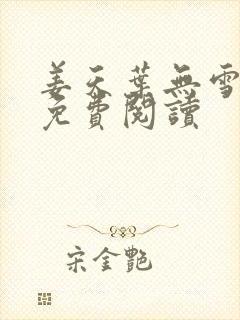 姜天葉無雪
免費閱讀
宋金艷